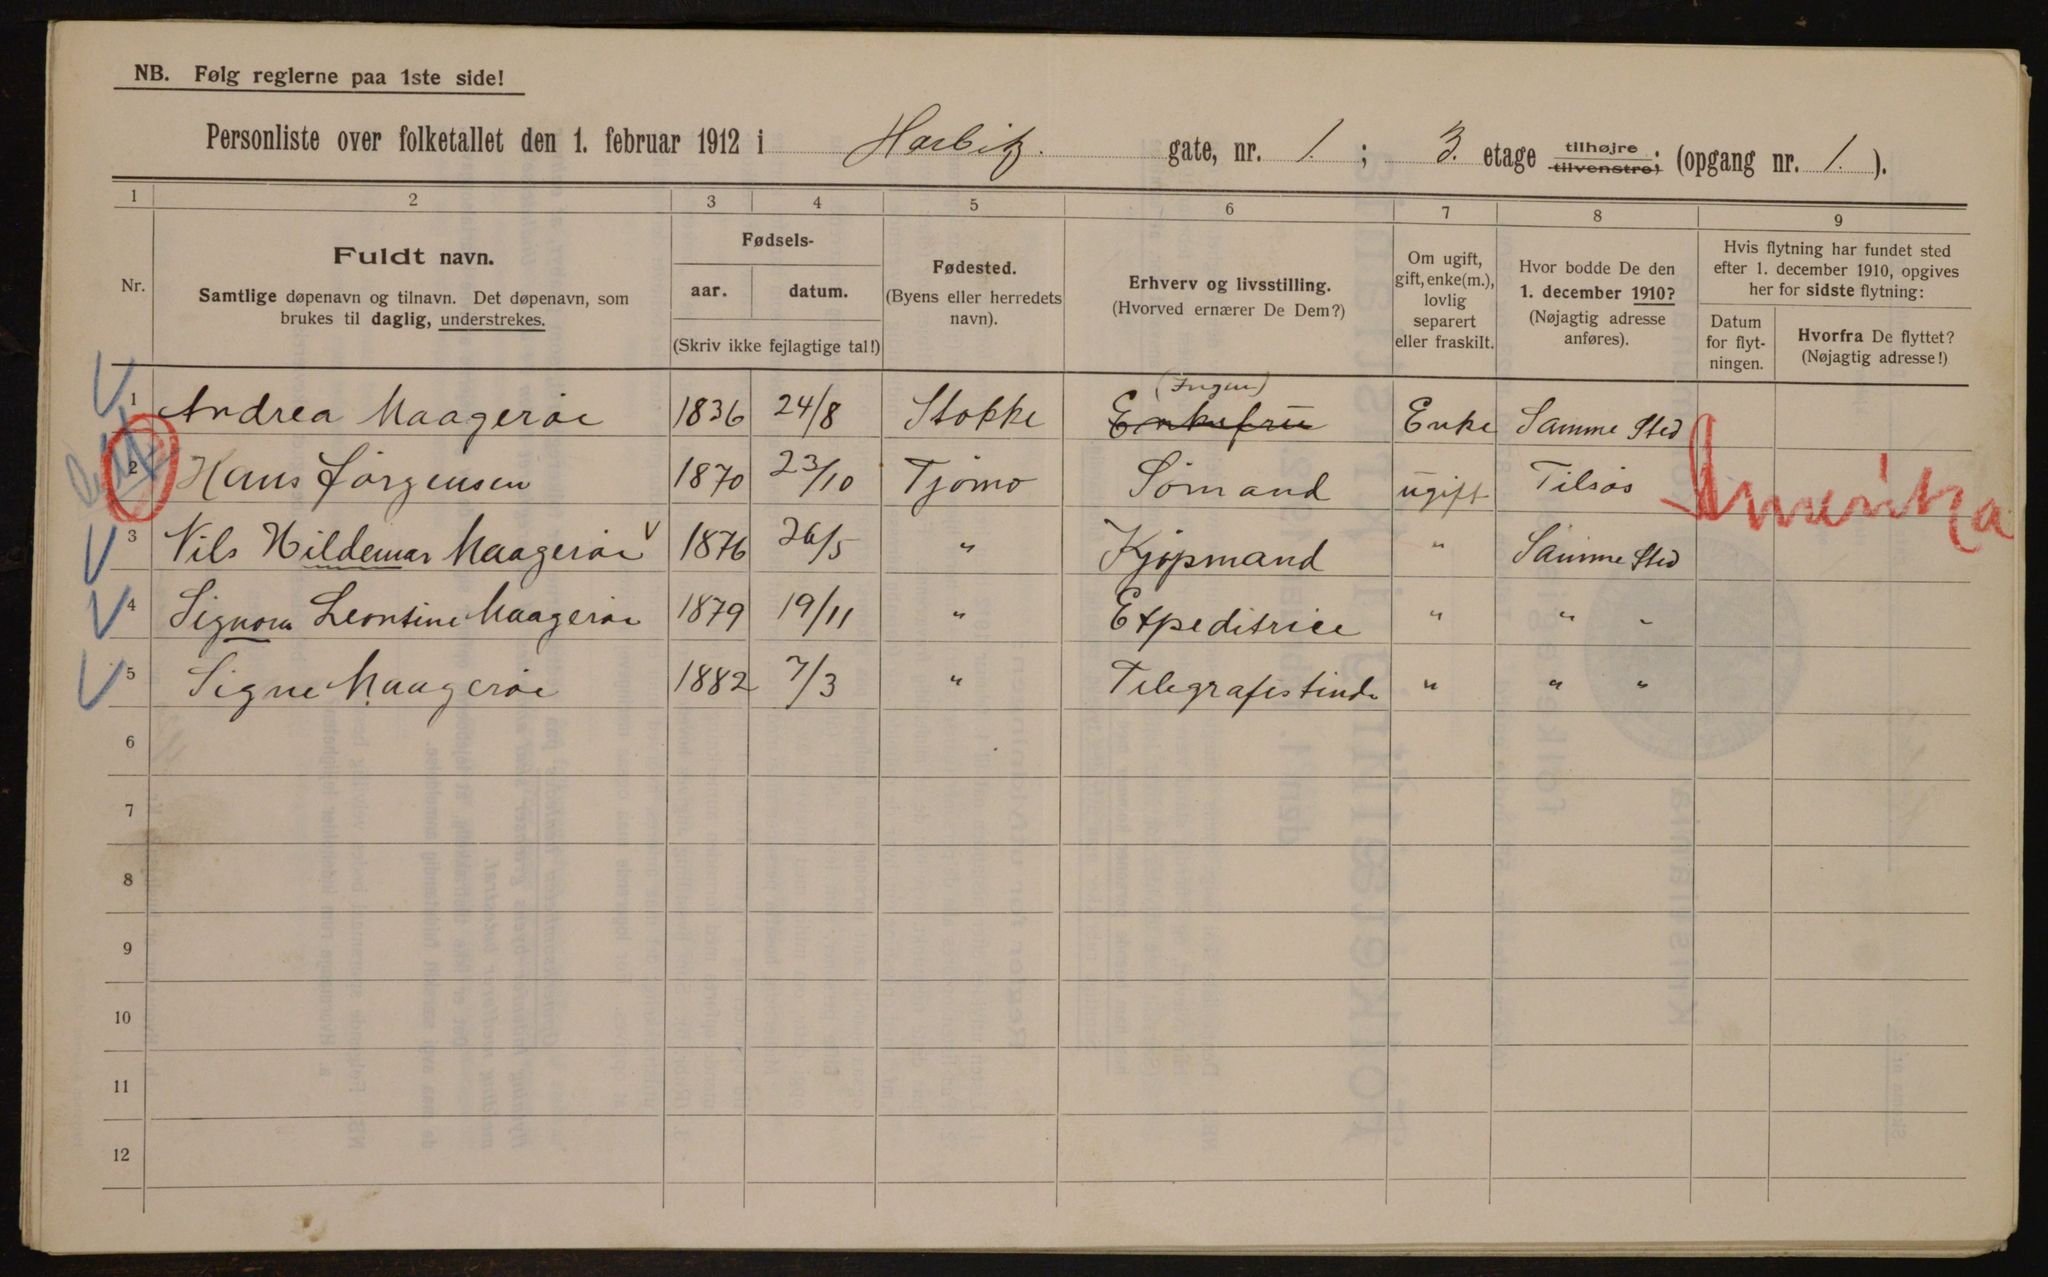 NB. Følg reglerne paa 1ste side!
Personliste over folketallet den 1. februar 1912 i Harbitz gate, nr. 1. ; 3. etage tilhøjre tilvenstre; (opgang nr. 1. ).
1 2 3 4 5 6 7 8 9
Nr.
Fuldt navn.
Samtlige døpenavn og tilnavn. Det døpenavn, som
brukes til daglig, understrekes.
Fødsels-
aar. datum.
(Skriv ikke fejlagtige tal!)
Fødested.
(Byens eller herredets
navn).
Erhverv og livsstilling.
(Hvorved ernærer De Dem?)
Om ugift,
gift, enke(m.),
lovlig
separert
eller fraskilt.
Hvor bodde De den
1. december 1910?
(Nøjagtig adresse
anføres).
Hvis flytning har fundet sted
efter 1. december 1910, opgives
her for sidste flytning:
Datum
for flyt-
ningen.
Hvorfra De flyttet?
(Nøjagtig adresse!)
(Ingen)
1 Andrea Maagerøe 1836 24/8 Stokke Enkefru Enke Samme Sted
2 Hans Jørgensen 1870 23/10 Tjømo Sømand ugift Tilsøs Amerika
3 Nils Hildemar Maagerøe 1876 26/5 " Kjøpmand " Samme Sted
4 Signora Leontine Maagerøe 1879 19/11 " Expeditrice " " "
5 Signe Maagerøe 1882 7/3 " Telegrafistinde " " "
6
7
8
9
10
11
12